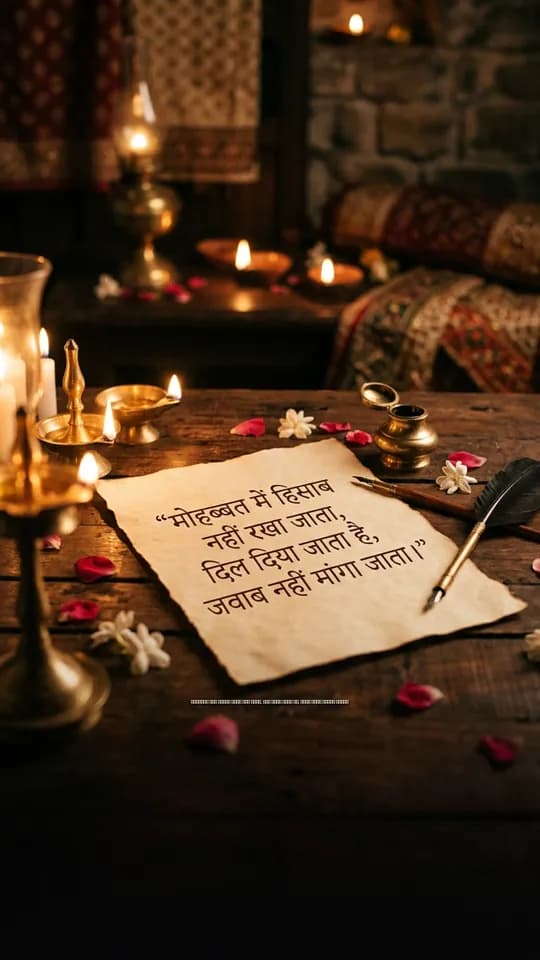 “मोहब्बत में हिसाब
नहीं रखा जाता,
दिल दिया जाता है,
जवाब नहीं मांगा जाता।”